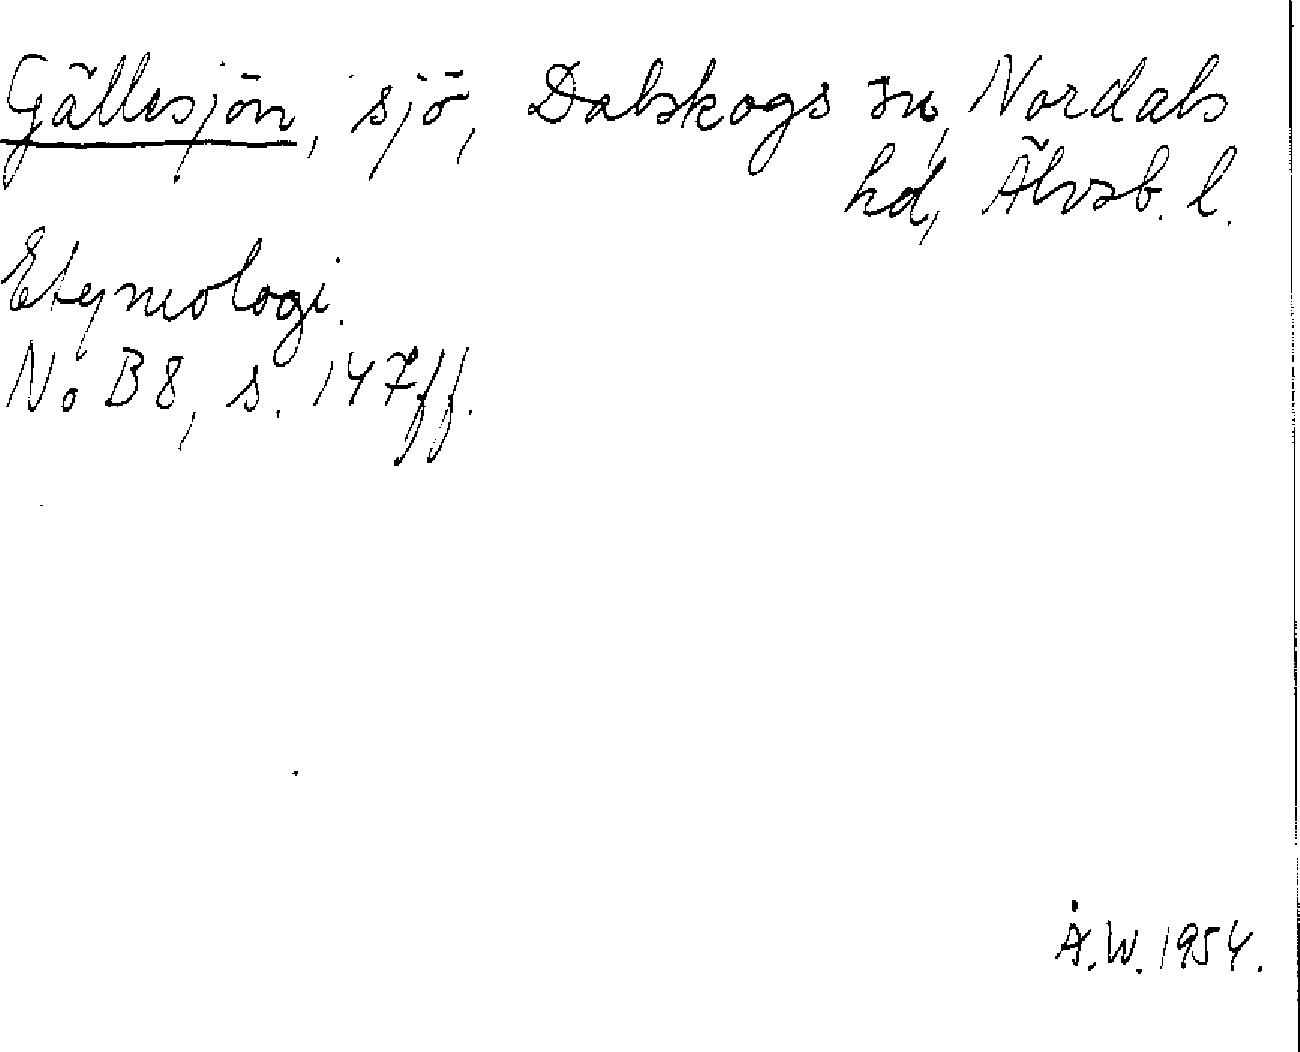 Gällesjön, sjö, Dalskogs sn, Nordals
hd, Älvsb. l.
Etymologi.
NoB 8, s. 147 ff.
Å.W. 1954.